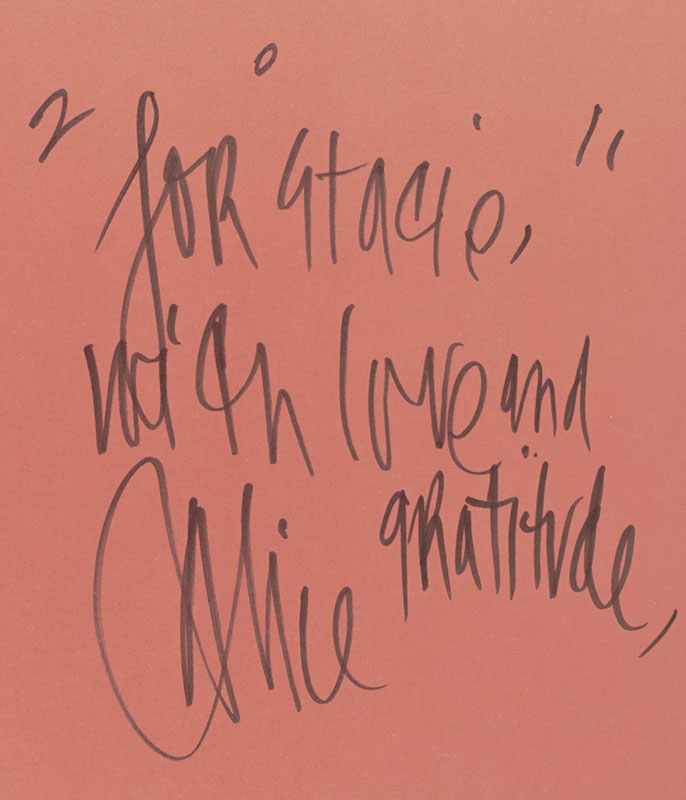 "for Stacie,"
with love and
gratitude,
Alice